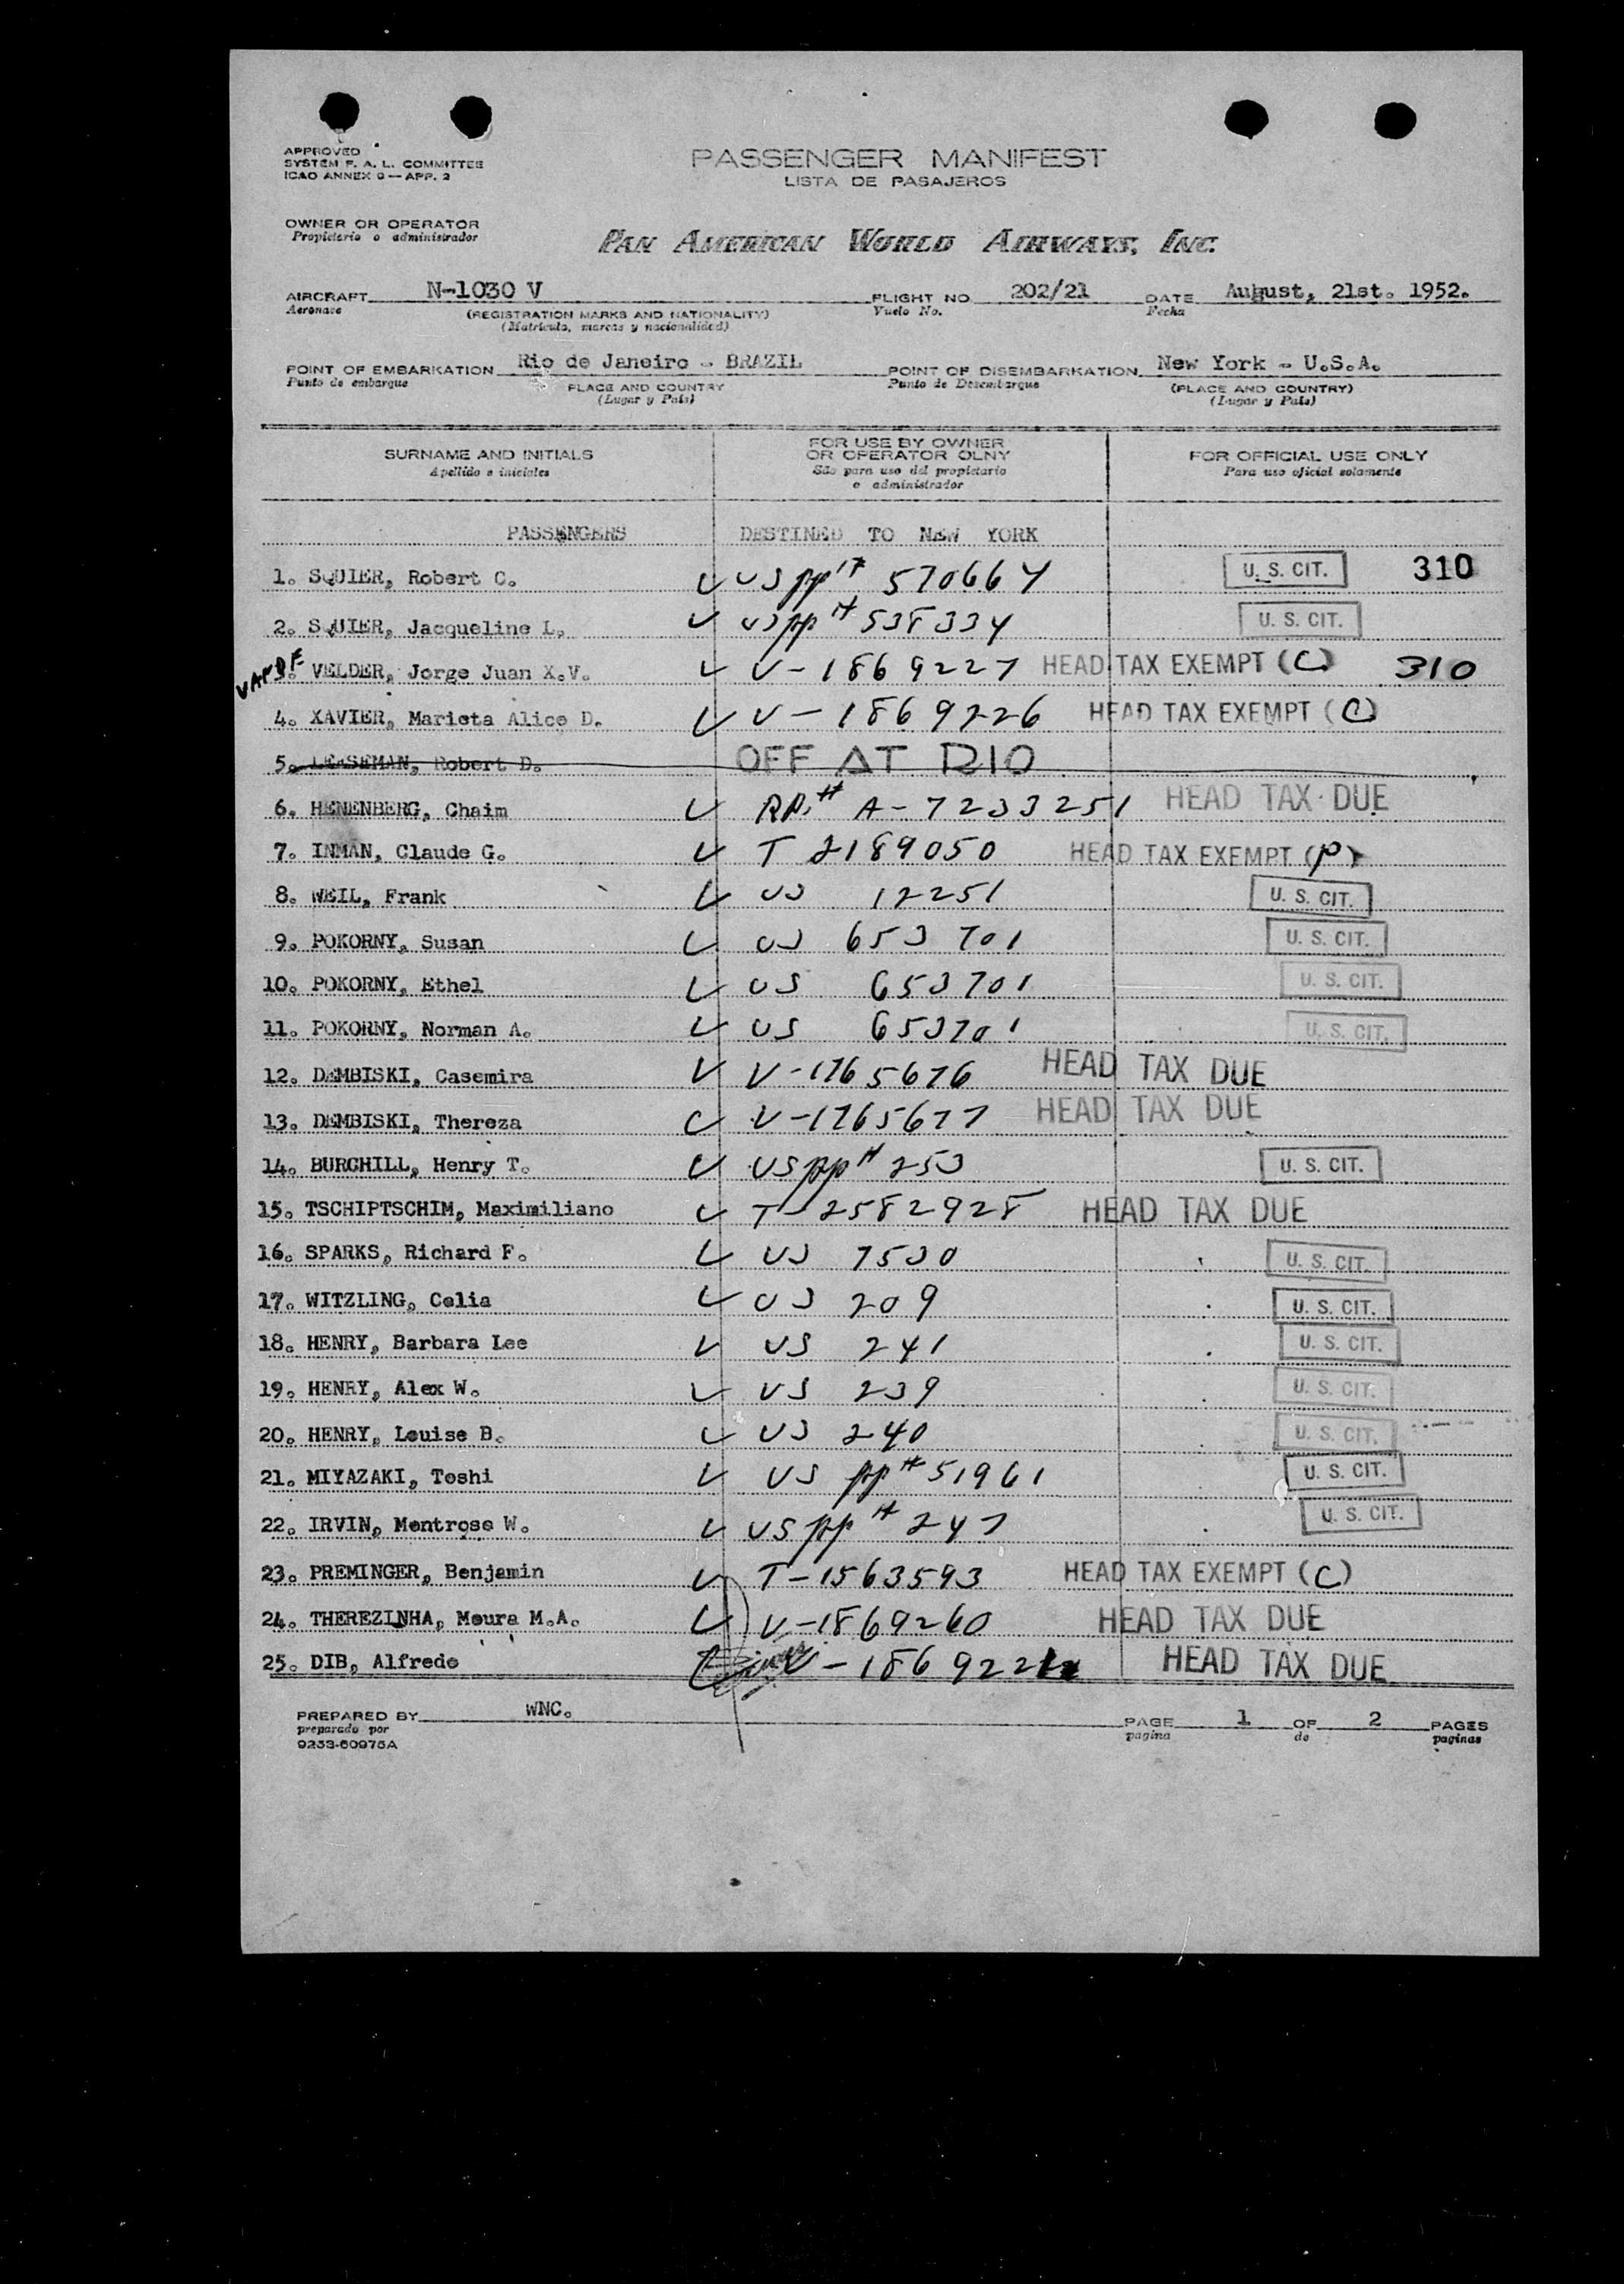 APPROVED
SYSTEM F. A. L. COMMITTEE
ICAO ANNEX 9 — APP. 2
PASSENGER MANIFEST
LISTA DE PASAJEROS
OWNER OR OPERATOR
Propietario o administrador
PAN AMERICAN WORLD AIRWAYS, INC.
AIRCRAFT N-1030 V FLIGHT NO 202/21 DATE August, 21st. 1952.
Aeronave (REGISTRATION MARKS AND NATIONALITY) Vuelo No. Fecha
(Matricula, marcas y nacionalidad)
POINT OF EMBARKATION Rio de Janeiro - BRAZIL POINT OF DISEMBARKATION New York - U.S.A.
Punto de embarque PLACE AND COUNTRY Punto de Desembarque (PLACE AND COUNTRY)
(Lugar y País) (Lugar y País)
SURNAME AND INITIALS FOR USE BY OWNER OR OPERATOR OLNY FOR OFFICIAL USE ONLY
Apellido e iniciales São para uso del propietario o administrador Para uso oficial solamente
PASSENGERS DESTINED TO NEW YORK
1. SQUIER, Robert C. US pp# 570664 U. S. CIT. 310
2. SQUIER, Jacqueline L. US pp# 538334 U. S. CIT.
VELDER, Jorge Juan X.V. V-1869227 HEAD TAX EXEMPT (C) 310
4. XAVIER, Marieta Alice D. V-1869226 HEAD TAX EXEMPT (C)
5. LEASEMAN, Robert D. OFF AT RIO
6. HENENBERG, Chaim RP.# A-7233251 HEAD TAX DUE
7. INMAN, Claude G. T 2189050 HEAD TAX EXEMPT (P)
8. WEIL, Frank US 12251 U. S. CIT.
9. POKORNY, Susan US 653701 U. S. CIT.
10. POKORNY, Ethel US 653701 U. S. CIT.
11. POKORNY, Norman A. US 653701 U. S. CIT.
12. DEMBISKI, Casemira V-1765676 HEAD TAX DUE
13. DEMBISKI, Thereza V-1765677 HEAD TAX DUE
14. BURCHILL, Henry T. US pp# 253 U. S. CIT.
15. TSCHIPTSCHIM, Maximiliano T-2582928 HEAD TAX DUE
16. SPARKS, Richard F. US 7530 U. S. CIT.
17. WITZLING, Celia US 209 U. S. CIT.
18. HENRY, Barbara Lee US 241 U. S. CIT.
19. HENRY, Alex W. US 239 U. S. CIT.
20. HENRY, Louise B. US 240 U. S. CIT.
21. MIYAZAKI, Toshi US pp# 51961 U. S. CIT.
22. IRVIN, Montrose W. US pp# 247 U. S. CIT.
23. PREMINGER, Benjamin T-1563593 HEAD TAX EXEMPT (C)
24. THEREZINHA, Moura M.A. V-1869260 HEAD TAX DUE
25. DIB, Alfredo HEAD TAX DUE
PREPARED BY WNC. PAGE 1 OF 2 PAGES
preparado por pagina de paginas
9253-60975A